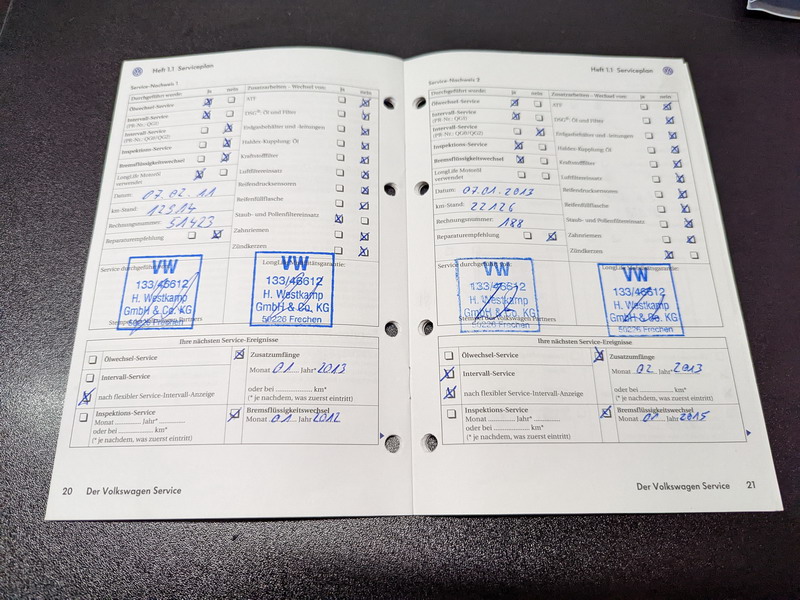 Heft 1.1 Serviceplan
Service-Nachweis 1
Durchgeführt wurde: ja nein
Ölwechsel-Service
Intervall-Service
(PR-Nr.: QG1)
Intervall-Service
(PR-Nr.: QG0/QG2)
Inspektions-Service
Bremsflüssigkeitswechsel
LongLife Motoröl
verwendet
Datum: 07.02.11
km-Stand: 12514
Rechnungsnummer: 51423
Reparaturempfehlung
Zusatzarbeiten - Wechsel von: ja nein
ATF
DSG®-Öl und Filter
Erdgasbehälter und -leitungen
Haldex-Kupplung: Öl
Kraftstofffilter
Luftfiltereinsatz
Reifendrucksensoren
Reifenfüllflasche
Staub- und Pollenfiltereinsatz
Zahnriemen
Zündkerzen
Service durchgeführt
VW
133/46612
H. Westkamp
GmbH & Co. KG
50226 Frechen
VW
133/46612
H. Westkamp
GmbH & Co. KG
50226 Frechen
Ihre nächsten Service-Ereignisse
Ölwechsel-Service
Intervall-Service
nach flexibler Service-Intervall-Anzeige
Inspektions-Service
Monat Jahr*
oder bei km*
(* je nachdem, was zuerst eintritt)
Zusatzumfänge
Monat 01 Jahr* 2013
oder bei km*
(* je nachdem, was zuerst eintritt)
Bremsflüssigkeitswechsel
Monat 01 Jahr 2012
20 Der Volkswagen Service
Heft 1.1 Serviceplan
Service-Nachweis 2
Durchgeführt wurde: ja nein
Ölwechsel-Service
Intervall-Service
(PR-Nr.: QG1)
Intervall-Service
(PR-Nr.: QG0/QG2)
Inspektions-Service
Bremsflüssigkeitswechsel
LongLife Motoröl
verwendet
Datum: 07.01.2013
km-Stand: 22126
Rechnungsnummer: 188
Reparaturempfehlung
Zusatzarbeiten - Wechsel von: ja nein
ATF
DSG®-Öl und Filter
Erdgasbehälter und -leitungen
Haldex-Kupplung: Öl
Kraftstofffilter
Luftfiltereinsatz
Reifendrucksensoren
Reifenfüllflasche
Staub- und Pollenfiltereinsatz
Zahnriemen
Zündkerzen
Service durchgeführt von:
VW
133/46612
H. Westkamp
GmbH & Co. KG
50226 Frechen
VW
133/46612
H. Westkamp
GmbH & Co. KG
50226 Frechen
Ihre nächsten Service-Ereignisse
Ölwechsel-Service
Intervall-Service
nach flexibler Service-Intervall-Anzeige
Inspektions-Service
Monat Jahr*
oder bei km*
(* je nachdem, was zuerst eintritt)
Zusatzumfänge
Monat 02 Jahr* 2013
oder bei km*
(* je nachdem, was zuerst eintritt)
Bremsflüssigkeitswechsel
Monat 01 Jahr 2015
Der Volkswagen Service 21